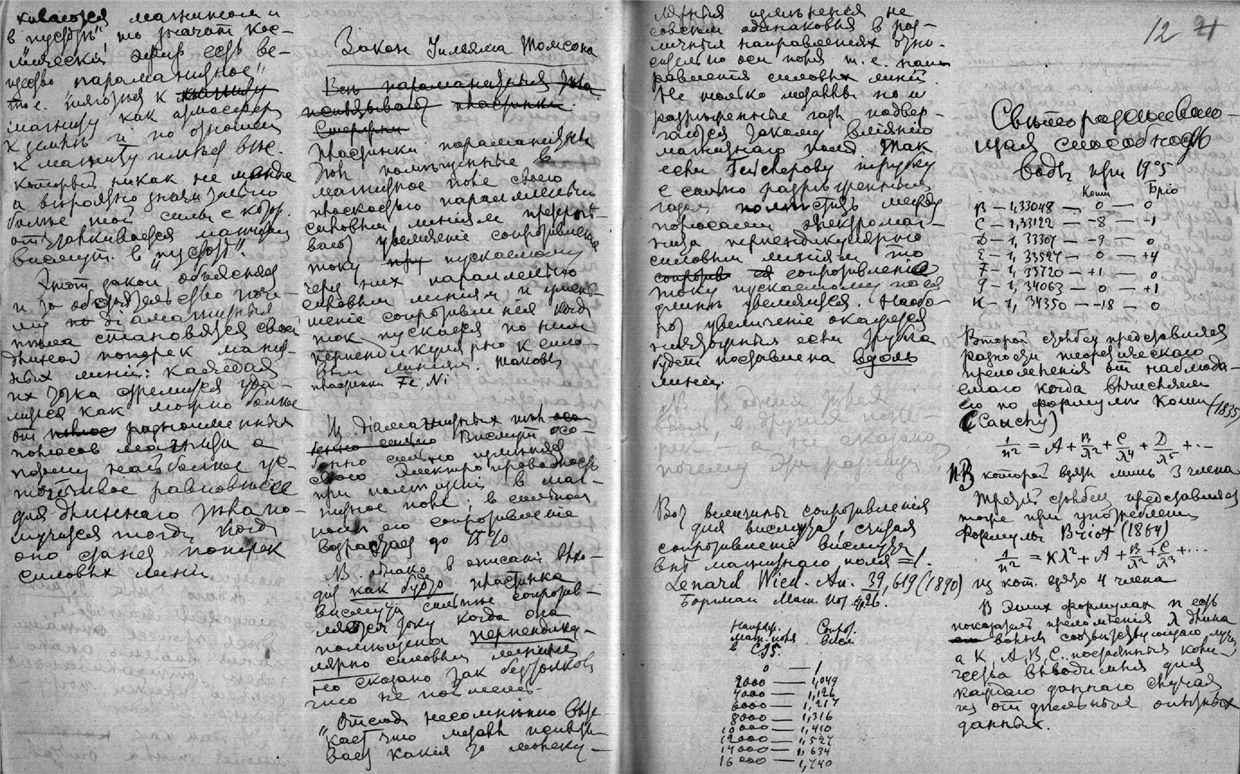 кивается магнитом и
в "пустоте" то значит кос-
мический эфир есть ве-
щество парамагнитное"
т.е. тянется к
магниту как атмосфера
к земле и по отношен.
к магниту имеет вес
который никак не меньше
а вероятно значительно
больше той силы с котор.
отталкивается магнитом
висмут. в "пустоте".
Этот закон объясняет
и то обстоятельство поче-
му то диамагнитныя
тела становятся своей
длиной поперек магнит-
ных линий: каждая
их точка стремится уда-
лится как можно больше
от разноименных
полюсов магнита а
потому наиболее ус-
тойчивое равновесие
для длиннаго тела по-
лучится тогда когда
оно станет поперек
силовых линий.
Закон Уильяма Томсона
Все парамагнитныя тела
пластинки
Пластинки парамагнитн.
тел помещенные в
магнитное поле своею
плоскостью параллельно
силовым линиям
увеличение сопротивления
току пускаемому
через них параллельно
силовым линиям и умень-
шение сопротивления когда
ток пускается по ним
перпендикулярно к сило-
вым линиям. таковы
пластинки Fe. Ni
Из диамагнитных тел
Висмут осо-
бенно сильно
свою электропроводность
при помещении в маг-
нитное поле; в сильном
поле его сопротивление
возрастает до
NB. Однако в описании выхо-
дит как будто пластинка
висмута сильнее сопротив-
ляется току когда она
помещена перпендику-
лярно силовым линиям
но сказано так бестолково
что не поймешь.
"Отсюда несомненно выте-
кает что медь
вает какия то молеку-
лярныя изменения не
совсем одинаковыя в раз-
личных направлениях отно-
сительно оси поля т.е. нап-
равления силовых линий.
Не только металлы но и
разреженные газы подвер-
гаются такому влиянию
магнитнаго поля так
если Гейслерову трубку
с сильно разреженным
газом поместить между
полюсами электромаг-
нита перпендикулярно
силовым линиям то
сопротивление
току пускаемому по ея
длине увеличится. Наобо-
рот увеличение окажется
если трубка
будет поставлена вдоль
линий.
NB В одних телах
вдоль, в других попе-
рек — а не сказано
почему эта разница?
Вот величины сопротивления
для висмута считая
сопротивление висмута
вне магнитнаго поля = 1.
Lenard Wied. An. 39, 619 (1890)
Боргман Маг. пот стр 26.
Напряж. Сопрот.
Маг. поля Висм.
в CGS.
0 — 1
2000 — 1,049
4000 — 1,126
6000 — 1,217
8000 — 1,316
10000 — 1,410
12000 — 1,527
14000 — 1,634
16000 — 1,740
12
Светоразсеиваю-
щая способность
воды при 19°5
Коши Бріо
B — 1,33048 — 0 — 0
C — 1,33122 — -8 — -1
D — 1,33307 — -9 — 0
E — 1,33527 — 0 — +4
F — 1,33720 — +1 0
G — 1,34063 — 0 — +1
H — 1,34350 — -18 — 0
Второй столбец представляет
разности теоретическаго
преломления от наблюда-
емаго когда вычисляем
его по формуле Коши (1835)
(Cauchy)
1/n² = A + B/λ² + C/λ⁴ + D/λ⁵ + ...
В которой взяты лишь 3 члена
Третий столбец представляет
тоже при употреблении
формулы Briot (1864)
1/n² = Kλ² + A + B/λ² + C/λ⁴ + ...
из кот. взято 4 члена
В этих формулах n есть
показатель преломления λ длина
волны соответствующаго луча
а K, A, B, C. постоянные коли-
чества выводимыя для
каждаго даннаго случая
из отдельных опытных
данных.